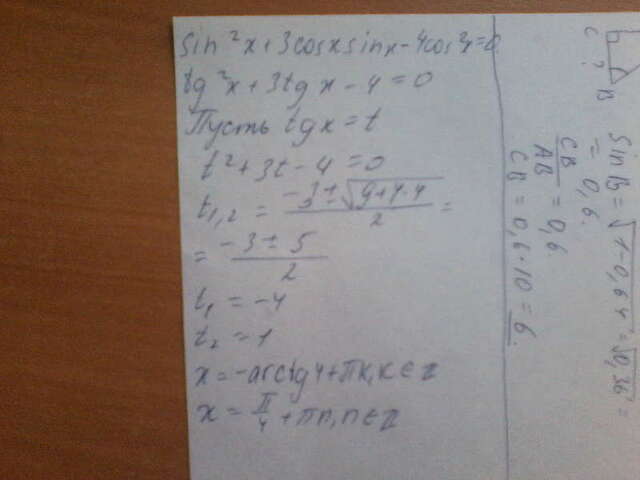 sin²x+3cosxsinx-4cos²x=0
tg²x+3tgx-4=0
Пусть tgx=t
t²+3t-4=0
t₁,₂ = (-3±√(9+4·4))/2 =
= (-3±5)/2
t₁ = -4
t₂ = 1
x=-arctg4+πk, k∈z
x= π/4 +πn, n∈z
C ? B
sin B = √(1-0,64) = √0,36 =
= 0,6.
CB/AB = 0,6.
CB = 0,6·10 = 6.